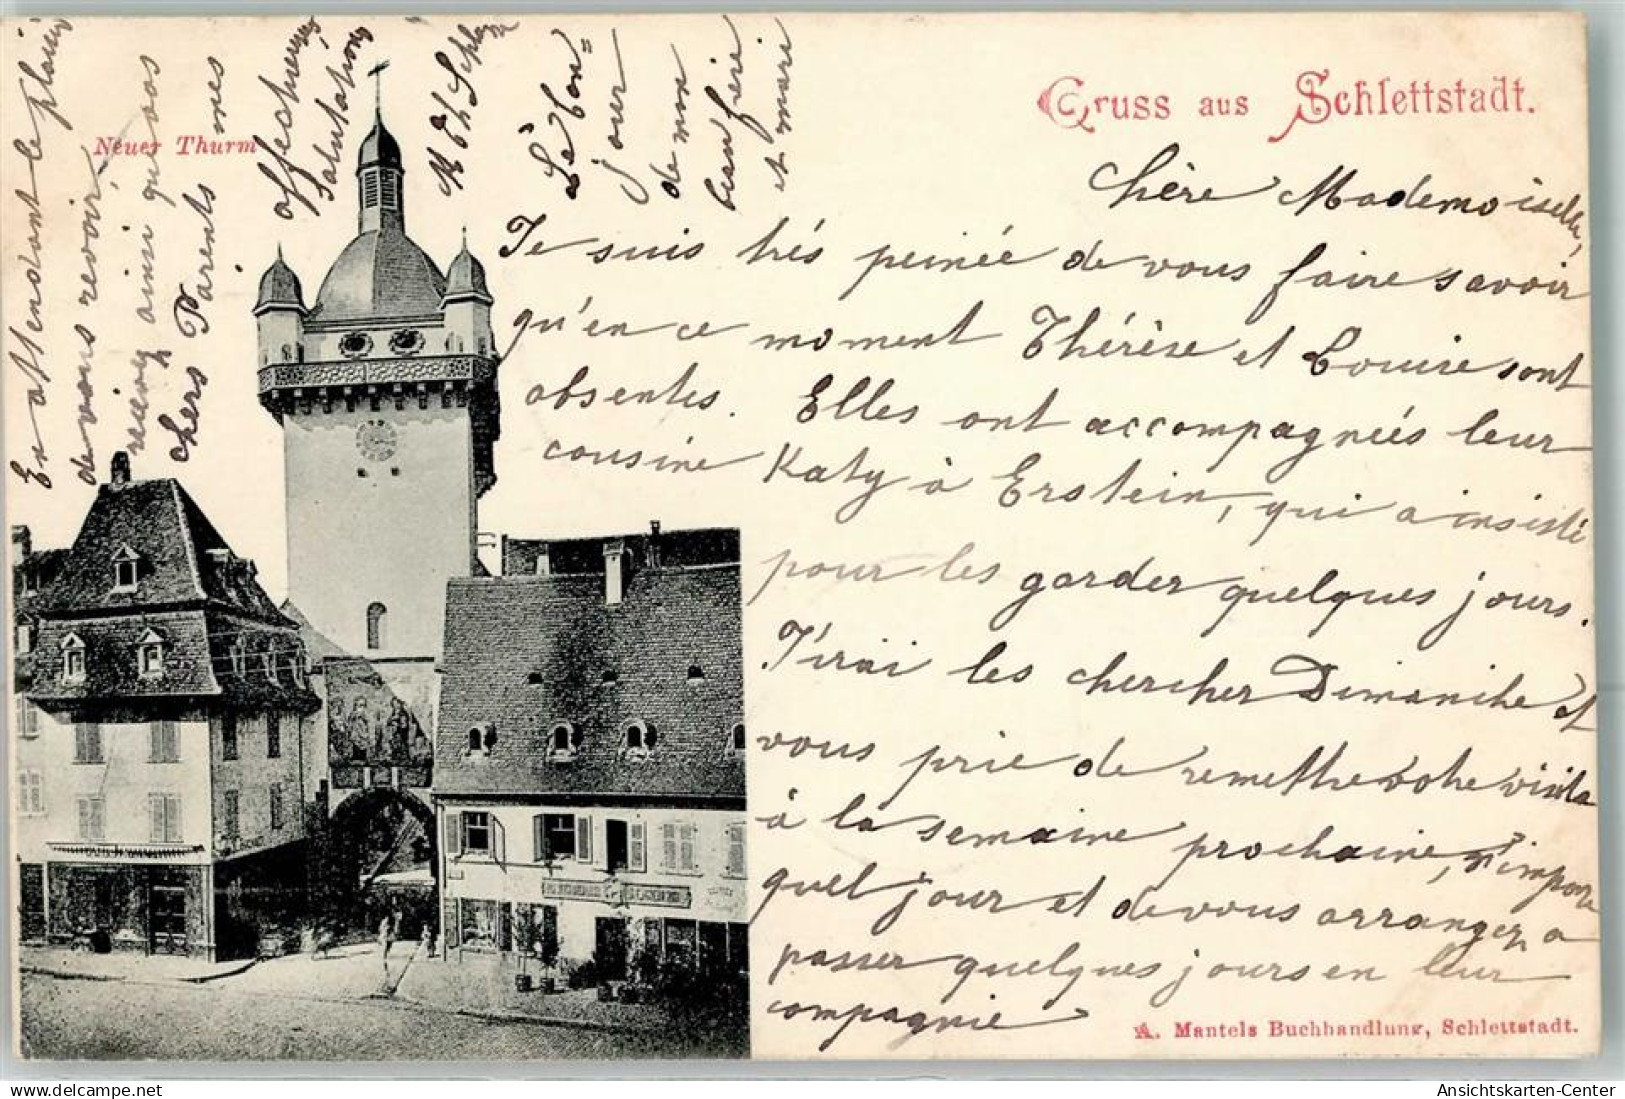 Gruss aus Schlettstadt.
Neuer Thurm
Chère Mademoiselle,
Je suis très peinée de vous faire savoir
qu'en ce moment Thérèse et Louise sont
absentes. Elles ont accompagnées leur
cousine Katy à Erstein, qui a insisté
pour les garder quelques jours.
J'irai les chercher Dimanche et
vous prie de remettre votre visite
à la semaine prochaine, n'importe
quel jour et de vous arranger, a
passer quelques jours en leur
compagnie
En attendant le plaisir
de vous revoir,
recevez ainsi que vos
chers Parents mes
affectueuses
salutations
Le bon=
jour
de mon
beau frère
et mari
A. Mantels Buchhandlung, Schlettstadt.
Ansichtskarten-Center